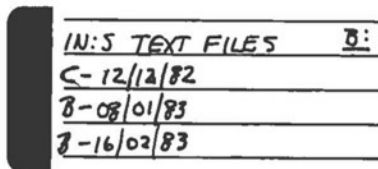 IN:S TEXT FILES B:
C- 12/12/82
B-08/01/83
B-16/02/83